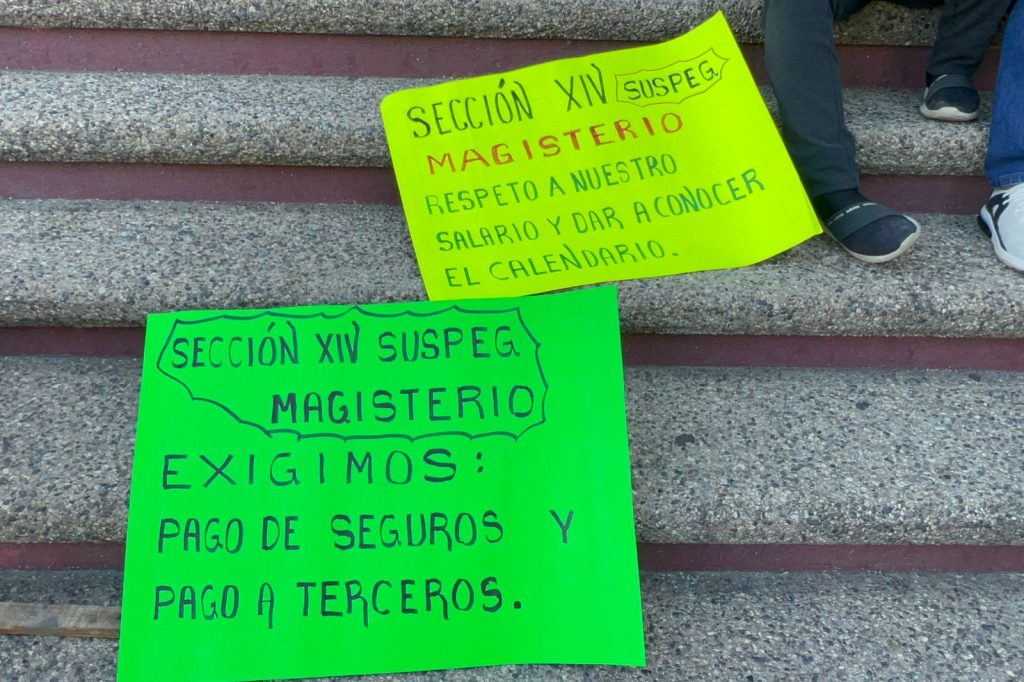 SECCIÓN XIV SUSPEG
MAGISTERIO
RESPETO A NUESTRO
SALARIO Y DAR A CONOCER
EL CALENDARIO.
SECCIÓN XIV SUSPEG
MAGISTERIO
EXIGIMOS:
PAGO DE SEGUROS Y
PAGO A TERCEROS.